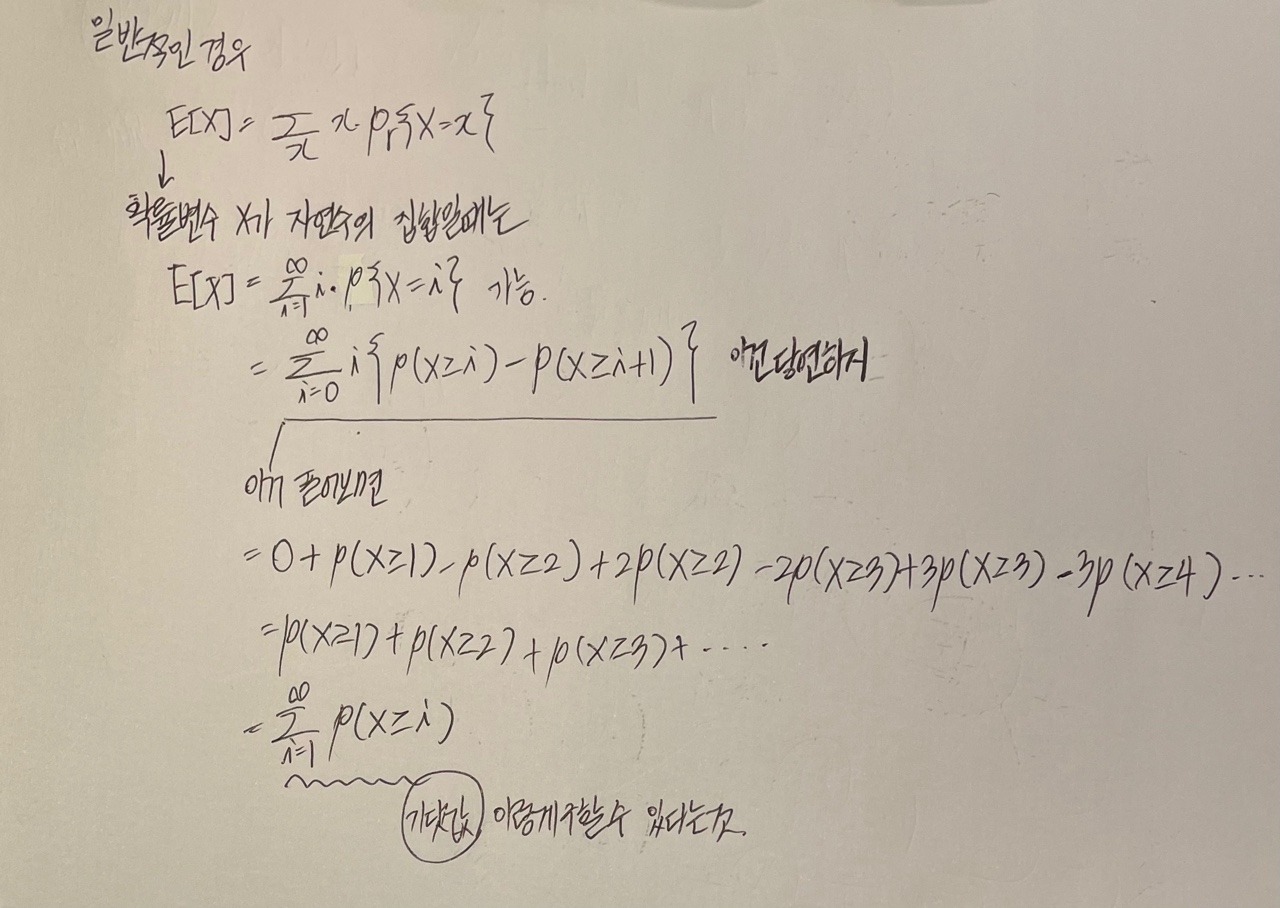 일반적인 경우
E[X] = Σ_x x · Pr{X=x}
↓
확률변수 X가 자연수의 집합일때는
E[X] = Σ_{i=1}^{∞} i · P{X=i} 가능.
= Σ_{i=0}^{∞} i{P(X≥i) - P(X≥i+1)} 이건 당연하지
이거 풀어보면
= 0 + P(X≥1) - P(X≥2) + 2P(X≥2) - 2P(X≥3) + 3P(X≥3) - 3P(X≥4) ...
= P(X≥1) + P(X≥2) + P(X≥3) + .....
= Σ_{i=1}^{∞} P(X≥i)
기댓값 이렇게 구할 수 있다는것.